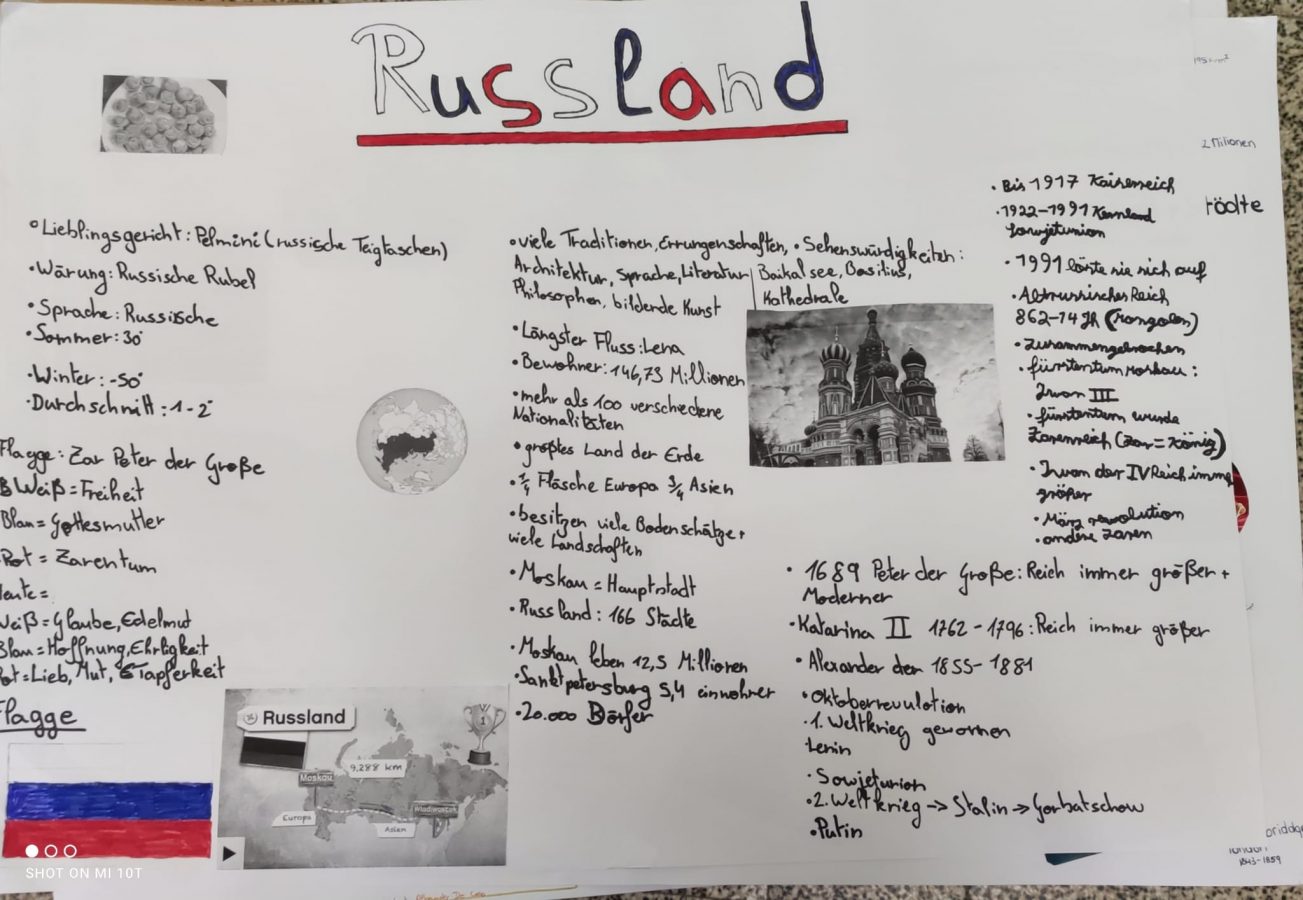 Russland
• Lieblingsgericht: Pelmini (russische Teigtaschen)
• Wärung: Russische Rubel
• Sprache: Russische
• Sommer: 30°
• Winter: -50°
• Durchschnitt: 1-2°
Flagge: Zar Peter der Große
Weiß = Freiheit
Blau = Gottesmutter
Rot = Zarentum
Heute =
Weiß = Glaube, Edelmut
Blau = Hoffnung, Ehrligkeit
Rot = Lieb, Mut, Tapferkeit
Flagge
Russland
9.288 km
Moskau
Europa
Asien
Wladiwostok
1
• viele Traditionen, Errungenschaften,
Architektur, Sprache, Literatur
Philosophen, bildende Kunst
• Längster Fluss: Lena
• Bewohner: 146,73 Millionen
• mehr als 100 verschiedene
Nationalitäten
• größtes Land der Erde
• 1/4 Fläsche Europa 3/4 Asien
• besitzen viele Bodenschätze +
viele Landschaften
• Moskau = Hauptstadt
• Russland: 166 Städte
• Moskau leben 12,5 Millionen
• Sanktpetersburg 5,4 einwohner
• 20.000 Dörfer
• Sehenswürdigkeiten:
Baikalsee, Basilius,
Kathedrale
• Bis 1917 Kaiserreich
• 1922-1991 Kernland
Sowjetunion
• 1991 löste sie sich auf
• Altrussisches Reich
862-14 Jh (Mongolen)
• Zusammengebrochen
• fürstentum Moskau:
Iwan III
• fürstentum wurde
Zarenreich (Zar = König)
• Iwan der IV Reich imme
größer
• März revolution
• andere Zaren
• 1689 Peter der Große: Reich immer größer +
Moderner
• Katarina II 1762-1796: Reich immer größer
• Alexander der 1855-1881
• Oktoberrevulotion
• 1. Weltkrieg gewonnen
Lenin
• Sowjetunion
• 2. Weltkrieg → Stalin → Gorbatschow
• Putin
2 Milionen
rödte
london
1843-1859
SHOT ON MI 10T